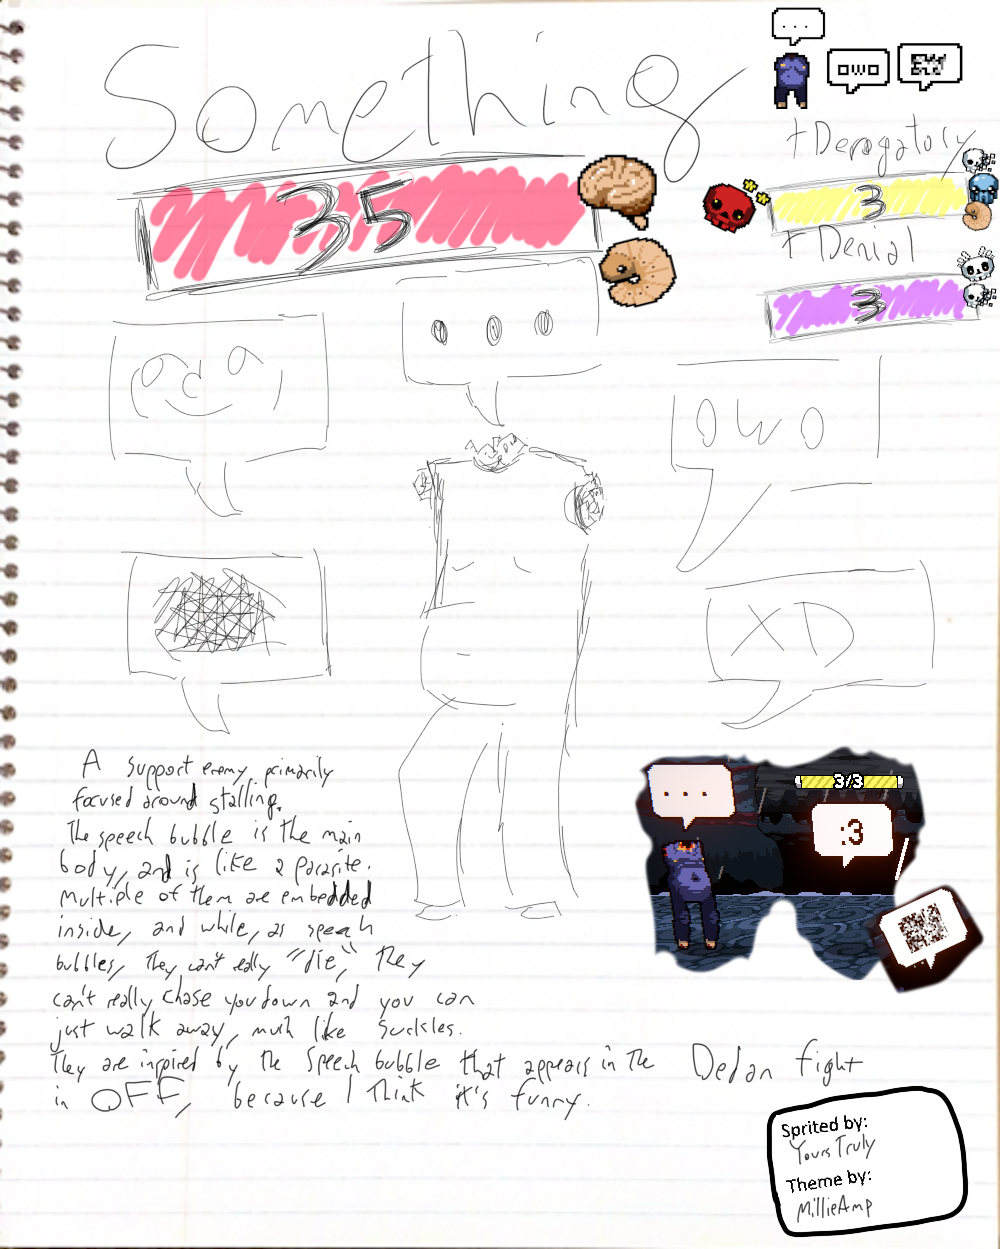 ...
owo
Something
+Derogatory
35
3
+Denial
3
...
owo
XD
A support enemy, primarily
focused around stalling.
The speech bubble is the main
body, and is like a parasite.
Multiple of them are embedded
inside, and while, as speech
bubbles, they can't really "die", they
can't really chase you down and you can
just walk away, much like suckles.
They are inspired by the speech bubble that appears in the Dedan fight
in OFF, because I think it's funny.
...
3/3
:3
Sprited by:
Yours Truly
Theme by:
MillieAmp